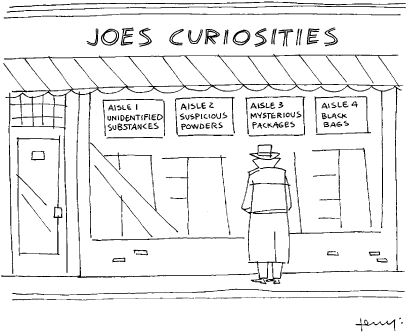 JOES CURIOSITIES
AISLE 1
UNIDENTIFIED
SUBSTANCES
AISLE 2
SUSPICIOUS
POWDERS
AISLE 3
MYSTERIOUS
PACKAGES
AISLE 4
BLACK
BAGS